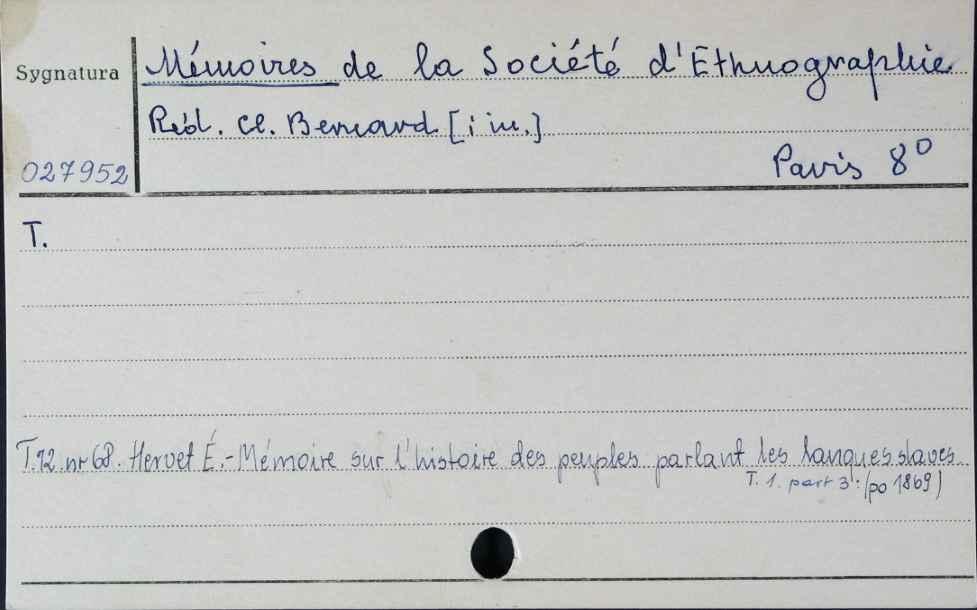 Sygnatura
Mémoires de la Société d'Ethnographie
Réd. Cl. Bernard [i in.]
027952
Paris 8°
T.
T.12 nr 68. Hervet É.-Mémoire sur l'histoire des peuples parlant les langues slaves
T. 1. part 3: (po 1869)